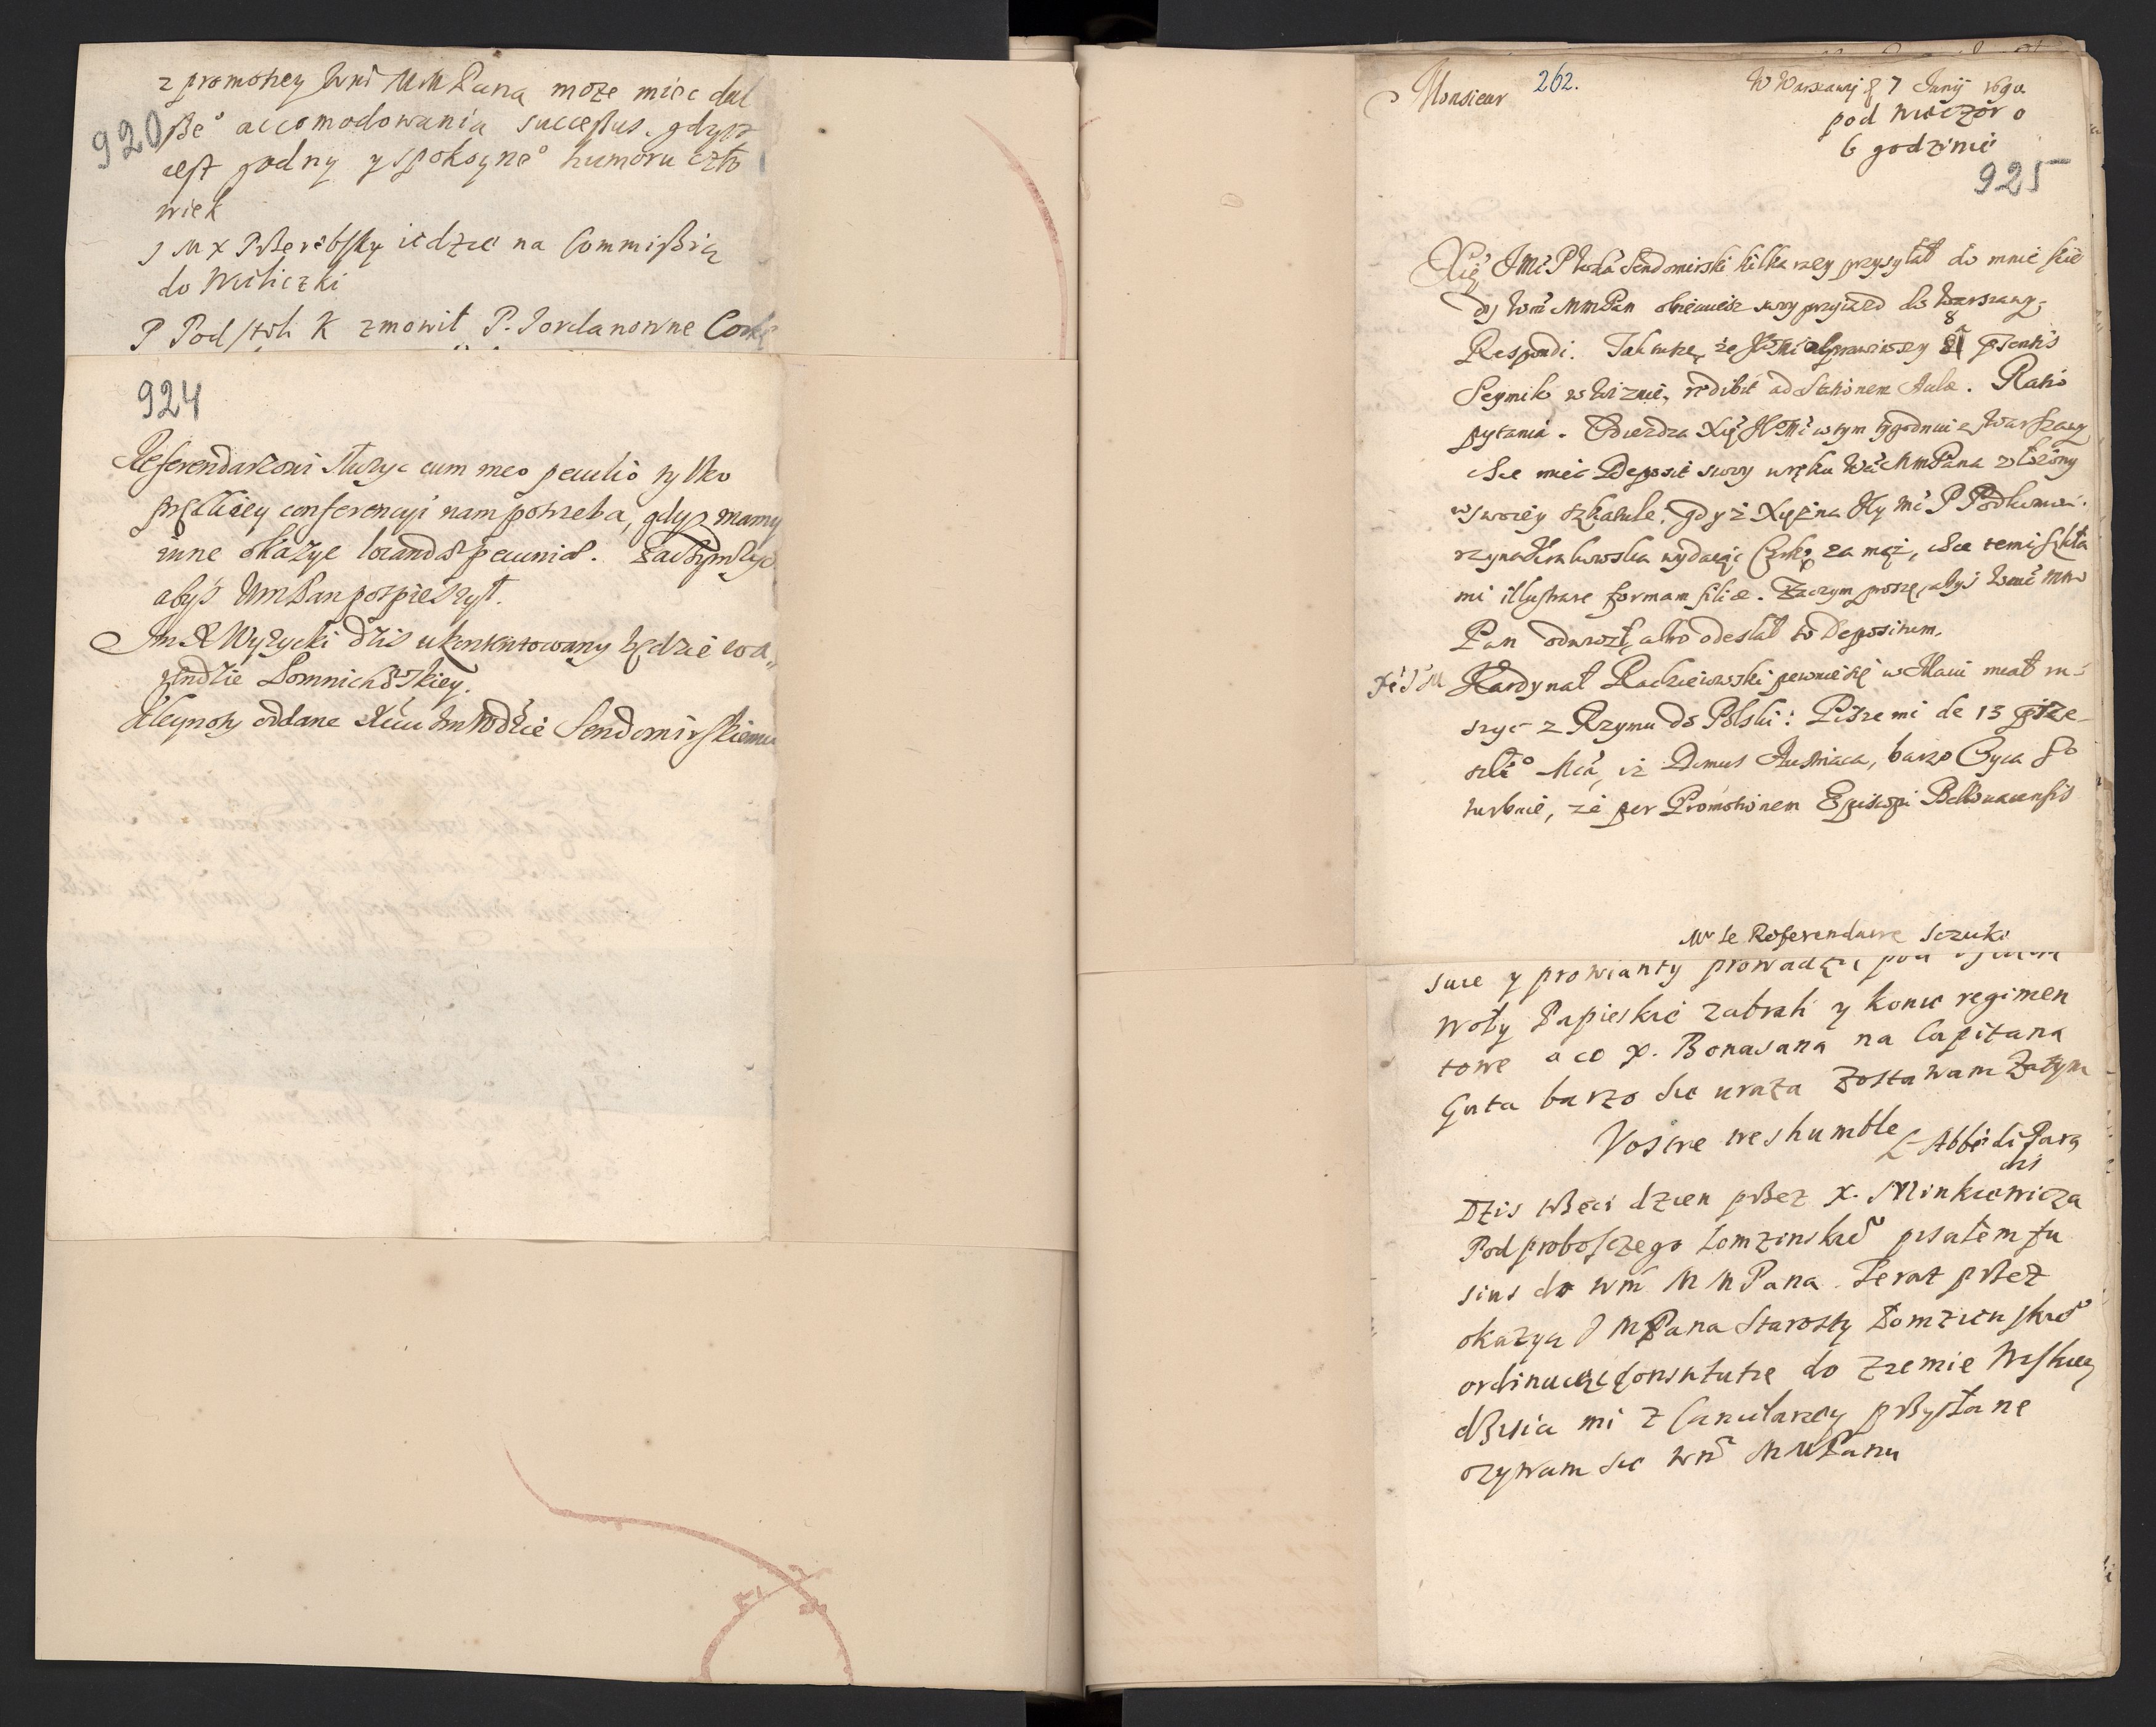 z promotiey Wmi MM Pana moze miec dal
920
ße° accomodowania successus. gdysz
jest godny y spokoyne° humoru czło
wiek
J M X Pßerębsky iedzie na Commißią
do Wieliczki
P Podstoli K zmowił P. Jordanowne Corkę
924
Referendarzowi służyc cum meo peculio tylko
prętkiey conferencyi nam potrzeba, gdyz mamy
inne okazye locandæ pecuniæ. Zaczym
abyś WmPan pospieszył.
Jm X Wyżycki dziś ukontentowany będzie wa„
rendzie
Kleynoty oddane Xciu Jm Wodzie Sendomirskiemu
Monsieur 262. W Warszawij d 7 Junij 1690.
pod wieczór o
6 godzinie
925
Xżę JMć P Wda Sendomirski kilka razy przysyłał do mnie kie
dy Wmć MMPan obiecuiesz swoy przyiazd do Warszawy,
Respondi. Tak tuszę, że JWMć odprawiwszy 8 præsentis
Seymik w Wiznie, redibit ad Stationem Aulæ. Ratio
pytania. Odiezdza Xżę JMć w tym tygodniu z Warszawy
chce miec Deposit swoy w ręku Wmć MMPana złożony
w swoiey szkatule, gdyż Xiężna Jey Mć P Podkomo-
rzyna Krakowska wydaiąc Corkę za mąż, chce temi
mi illustrare formam filiæ. Zaczym proszę, abyś Wmć MM
Pan odwiozł, albo odesłał to Depositum.
Xże J M Kardynał Radzieiowski pewnie się w Maiu miał ru-
szyć z Rzymu do Polski: Pisze mi de 13 prze-
szłe° Mca, iż Domus Austriaca, barzo Oyca Sº
turbuie, że per Promotionem Episcopi Bellovacensis
Mr le Referendaire Sczuki
suie y prowianty prowadzą pod
woły Papieskie zabrali y konie regimen
towe a co x. Bonasana na Capitana
Guta barzo sie uraza Zostawam Zatym
Vostre tres humble L'Abbé di Para
dis
Dzis wßeci dzien pßez x. Minkiewicza
Podproboszczego Łomzinskie° pisałem fu
sius do wm M M Pana. Teraz pßez
okazya J M Pana Starosty Łomzienskie°
ordinuięc Constitutie do Ziemie Wiskiey
dßisia mi z Cancelarzey pßysłane
ozywam sie wm M M Panu